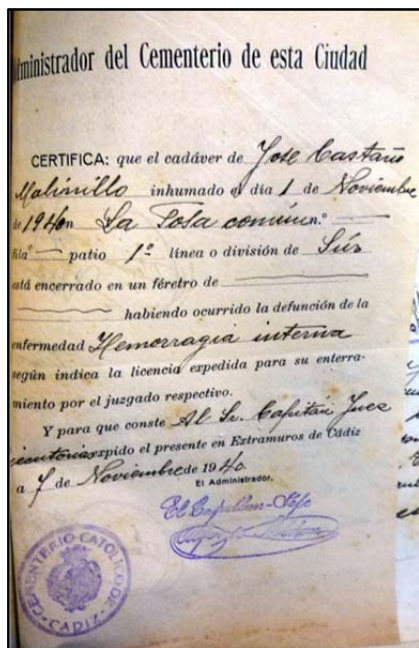 dministrador del Cementerio de esta Ciudad
CERTIFICA: que el cadáver de Jose Castaño
Molinillo inhumado el día 1 de Noviembre
de 1940 en La Fosa común n.º
fila patio 1º línea o división de Sur
está encerrado en un féretro de
habiendo ocurrido la defunción de la
enfermedad Hemorragia interna
según indica la licencia expedida para su enterra-
miento por el juzgado respectivo.
Y para que conste Al Sr. Capitán Juez
expido el presente en Extramuros de Cádiz
a 7 de Noviembre de 1940
El Administrador,
El Capellan-Jefe
CEMENTERIO CATOLICO DE CADIZ